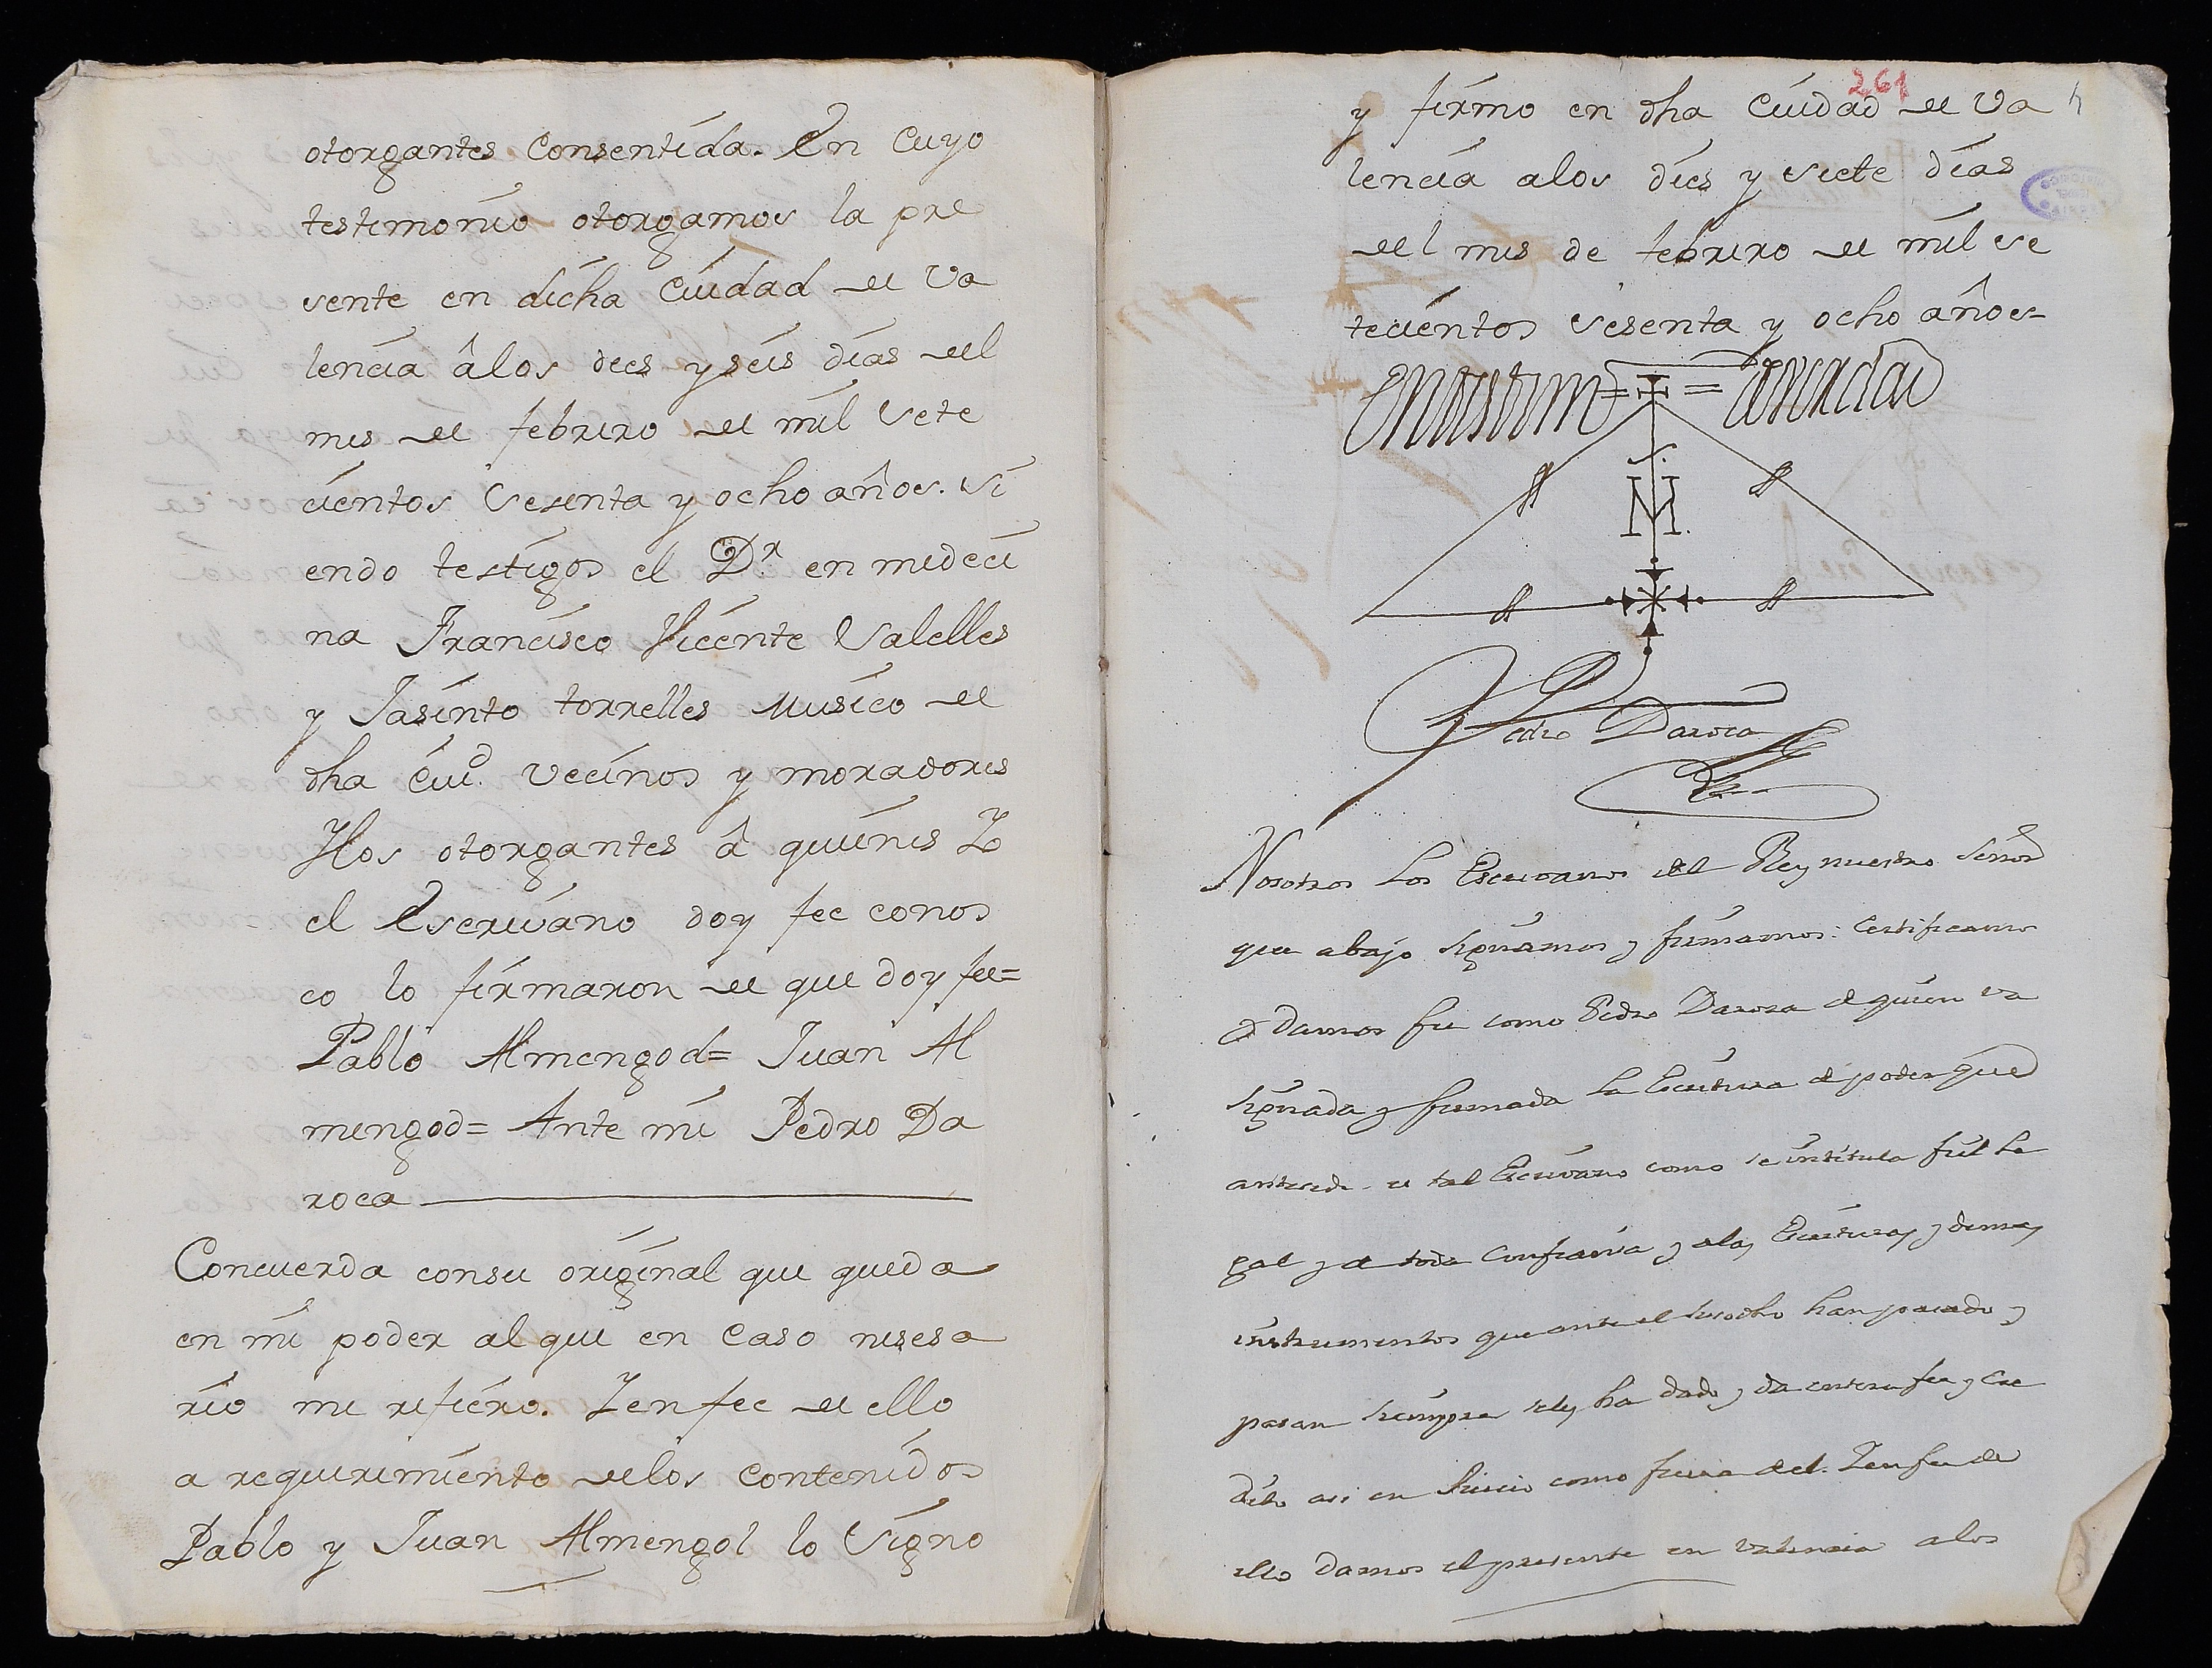 otorgantes Consentida. En Cuyo
testimonio otorgamos la pre
sente en dicha Ciudad de Va
lencia âlos dies y seis dias del
mes de febrero de mil sete
cientos Sesenta y ocho años. Si
endo testigos el Dr. en medeci
na Francisco Vicente Valelles
y Jasinto torrelles Musico de
dha Ciud. vecinos y moradores
Ylos otorgantes â quienes Yo
el Escrivano doy fee conos
co lo firmaron de que doy fee=
Pablo Almengod= Juan Al
mengod= Ante mi Pedro Da
roca
Concuerda consu original que queda
en mi poder al que en Caso nesesa
rio me refiero. Yenfee de ello
a requirimiento delos Contenidos
Pablo y Juan Almengol lo Signo
261
y firmo en dha Ciudad de Va
lencia alos dies y siete dias
del mes de febrero de mil se
tecientos sesenta y ocho años=
En testimo = = de verdad
S.
M.
Pedro Daroca
Nosotros Los Escrivanos del Rey nuestro Señor
que abajo signamos y firmamos: Certificamos
y Damos fee como Pedro Daroca de quien va
signada y firmada la Escritura de poder que
antecede es tal Escrivano como se intitula fiel Le
gal y de toda Confianza y alas Escrituras y demas
instrumentos que ante el susodho han pasado y
pasan siempre seles ha dado y da entera fee y Cre
dito asi en Juicio como fuera del. Yenfee de
ello Damos el presente en Valencia alos